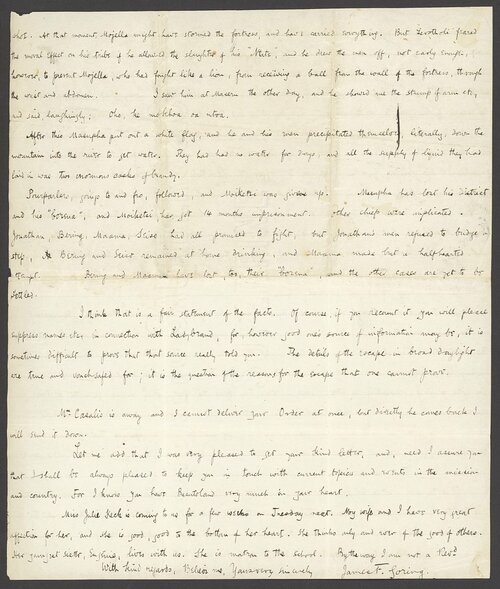 shot. At that moment, Mojella might have stormed the fortress, and have carried everything. But Lerotholi feared
the moral effect on his tribe if he allowed the slaughter of his "Mate", and he drew the men off, not early enough,
however, to prevent Mojella, who had fought like a lion, from receiving a ball from the wall of the fortress, through
the wrist and abdomen. I saw him at Maseru the other day, and he showed me the stump of arm etc,
and said, laughingly; Che, ke mokhoa oa ntoa.
After this Masupha put out a white flag, and he and his men precipitated themselves, literally, down the
mountain into the river to get water. They had had no water for days, and all the supply of liquid they had
laid in was two enormous casks of brandy.
Pourparlers, going to and fro, followed, and Moiketsi was given up. Masupha has lost his District
and his "borena", and Moiketsi has got 14 months imprisonment. Other chiefs were implicated.
Jonathan, Bereng, Maama, Seiso had all promised to fight, but Jonathan's men refused to budge a
step, Bereng and Seiso remained at home drinking, and Maama made but a half-hearted
attempt. Bereng and Maama have lost, too, their "borena", and the other cases are yet to be
settled.
I think that is a fair statement of the facts. Of course, if you recount it you will please
suppress names, etc, in connection with Ladybrand, for, however good one's source of information may be, it is
sometimes difficult to prove that that source really told you. The details of the escape in broad daylight
are true and vouch-safed for; it is the question of the reasons for the escape that one cannot prove.
Mr Casalis is away and I cannot deliver your Order at once, but directly he comes back I
will send it down.
Let me add that I was very pleased to get your kind letter, and, need I assure you
that I shall be always pleased to keep you in touch with current topics and events in the mission
and country. For I know you have Basutoland very much in your heart.
Miss Julie Keck is coming to us for a few weeks on Tuesday next. My wife and I have very great
affection for her, and she is good, good to the bottom of her heart. She thinks only and ever of the good of others.
Her youngest sister, Eugénie, lives with us. She is matron to the school. By the way I am not a Revd.
With kind regards, Believe me, Yours very sincerely
James F. Goring.